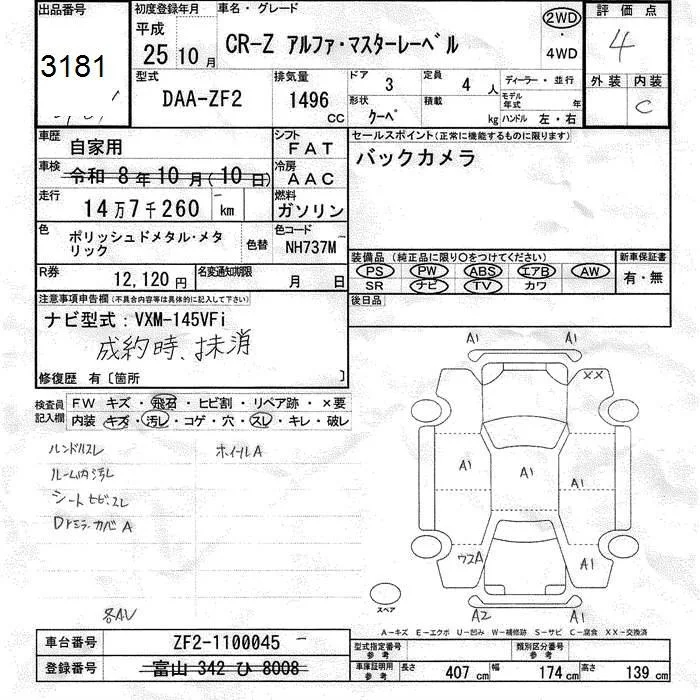 出品番号 初度登録年月 車名・グレード 評価点
3181 平成 25年 10月 CR-Z アルファ・マスターレーベル 2WD・4WD 4
型式 排気量 ドア 3 定員 4人 ディーラー・並行 外装 内装
DAA-ZF2 1496cc 形状 クーペ 積載 kg モデル年式 年 ハンドル 左・右 C
車歴 自家用 シフト FAT セールスポイント(正常に機能するものに限ります)
車検 令和 8年 10月(10日) 冷房 AAC バックカメラ
走行 14万7千260 km 燃料 ガソリン
色 ポリッシュドメタル・メタリック 色替 色コード NH737M
装備品 (純正品に限り○をつけてください) 新車保証書
R券 12,120円 名変通知期限 月 日 PS PW ABS エアB AW 有・無
SR ナビ TV カワ
注意事項申告欄(不具合内容等は具体的に記入して下さい) 後日品
ナビ型式:VXM-145VFi
成約時、抹消
修復歴 有〔箇所 〕
検査員記入欄 FW キズ・飛石・ヒビ割・リペア跡・×要
内装 キズ・汚レ・コゲ・穴・スレ・キレ・破レ
ハンドルスレ ホイールA
ルーム内汚レ
シートセビ、スレ
Drミラーカバ A
各AU
A1
A1
XX
A1 A1 A1
ウスA A1
スペア
A2 A1
A-キズ E-エクボ U-凹み W-補修跡 S-サビ C-腐食 XX-交換済
車台番号 ZF2-1100045 型式指定番号 参考 類別区分番号 参考
登録番号 富山 342 ひ 8008 車庫証明用 参考 長さ 407cm 幅 174cm 高さ 139cm